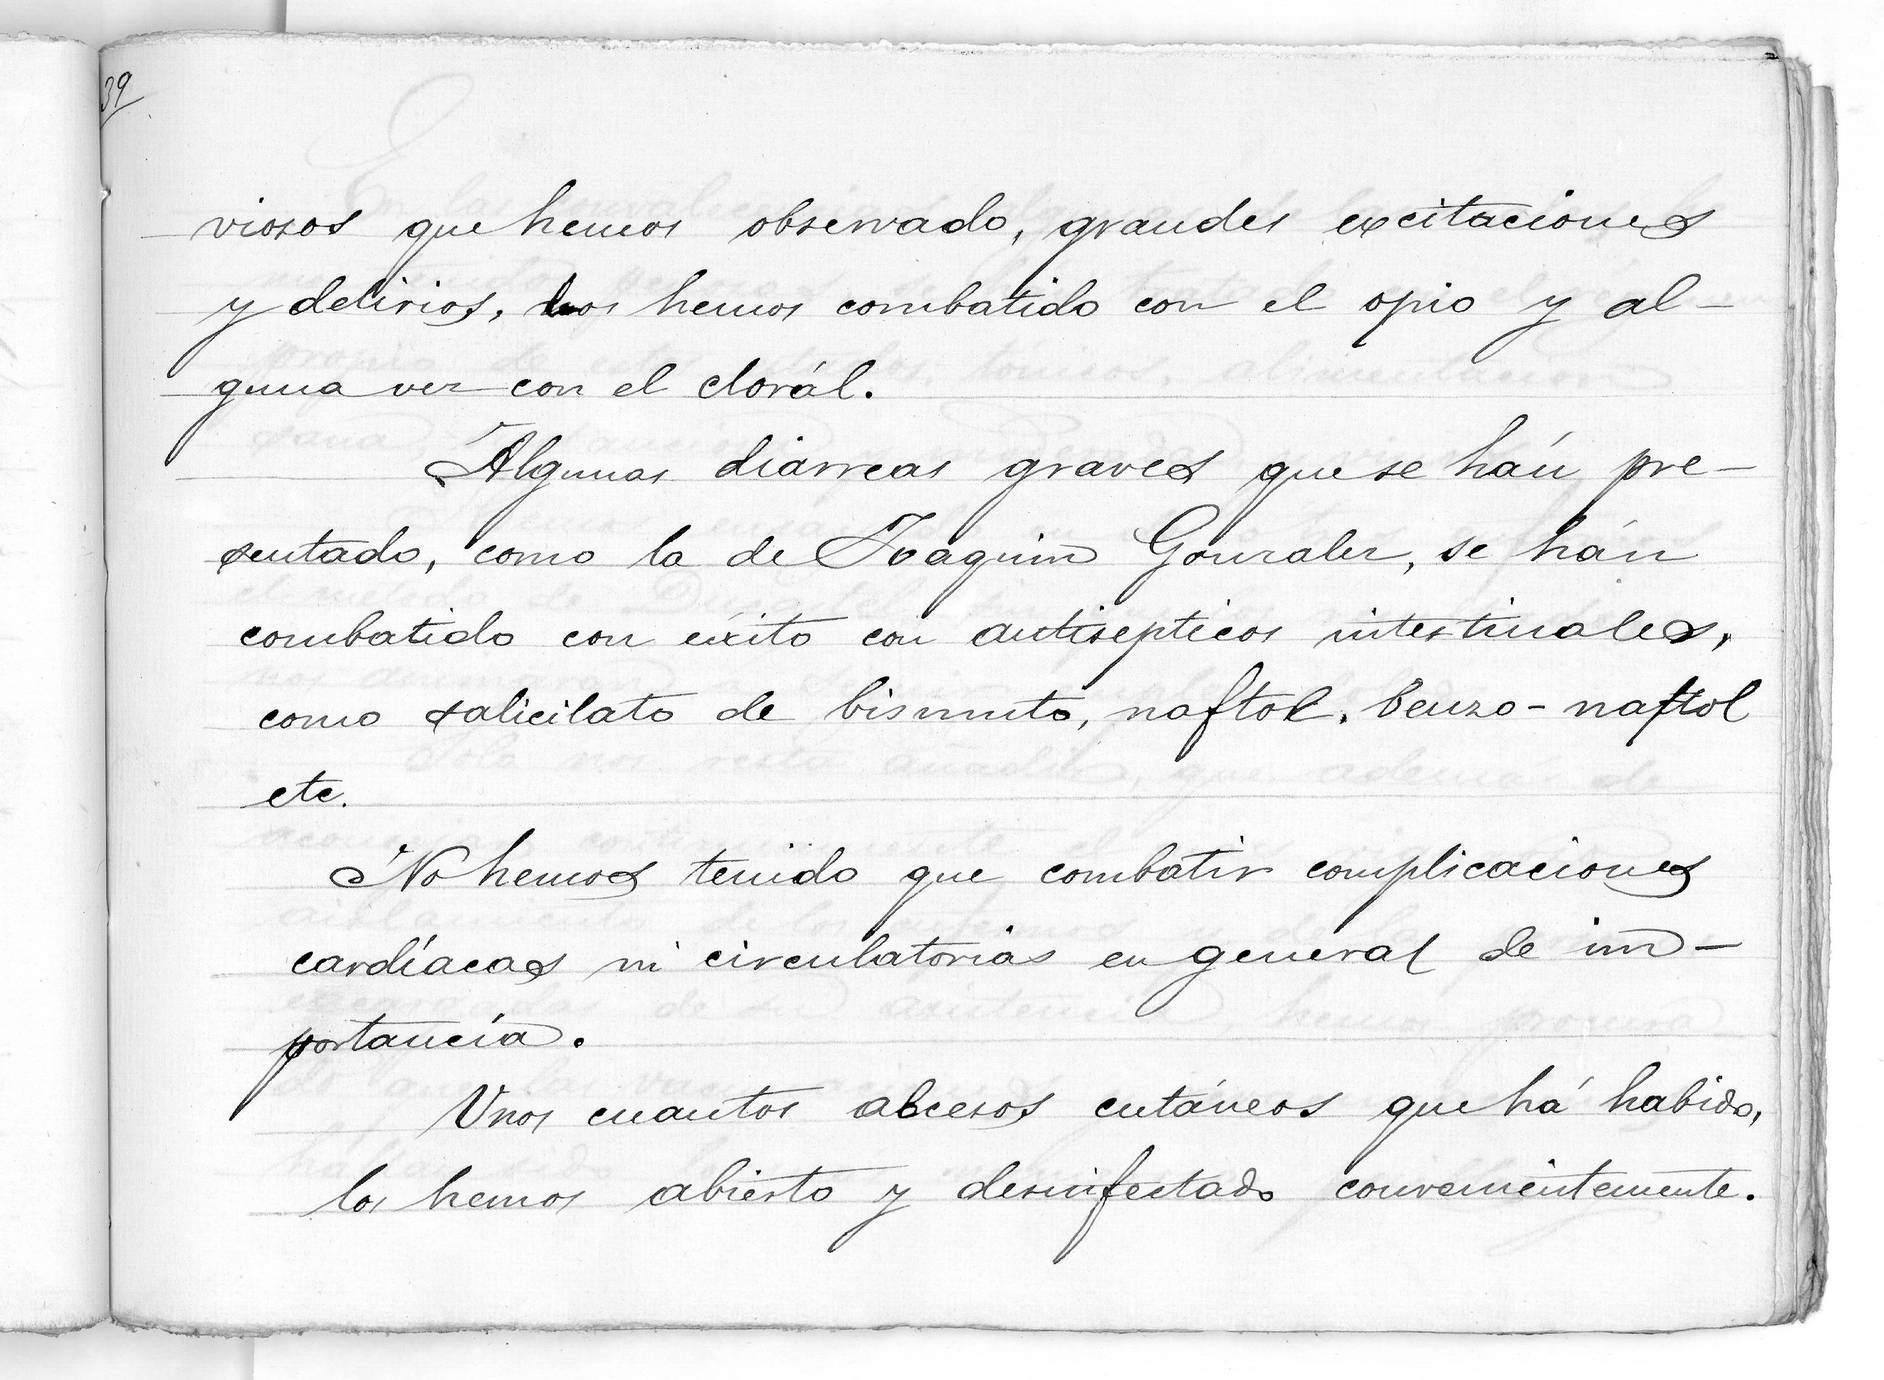 39
viosos que hemos observado, grandes excitaciones
y delirios, los hemos combatido con el opio y al-
guna vez con el clorál.
Algunas diárreas graves que se hán pre-
sentado, como la de Joaquim Gonzalez, se hán
combatido con éxito con antisepticos intestinales,
como salicilato de bismuto, naftol, benzo-naftol
etc.
No hemos tenido que combatir complicaciones
cardíacas ni circulatorias en general de im-
portancía.
Unos cuantos abcesos cutáneos que há habido,
los hemos abierto y desinfectado convenientemente.